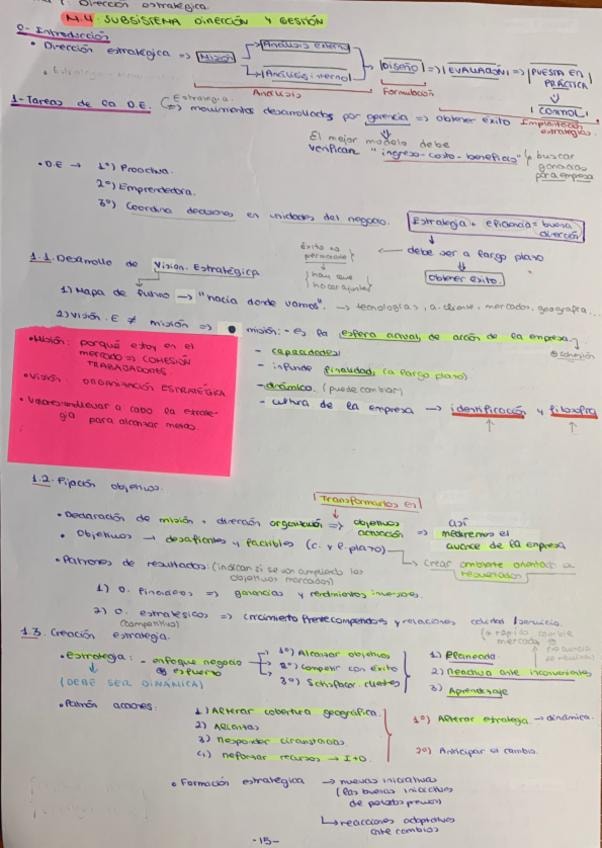 Dirección estratégica.
N.4. SUBSISTEMA DIRECCIÓN Y GESTIÓN
0- Introducción
• Dirección estratégica => Misión
Análisis externo
Análisis interno
Diseño => EVALUACIÓN => PUESTA EN PRÁCTICA
Análisis
Formulación
CONTROL
Implantación estrategias
1-Tareas de la D.E.
Estrategia.
=> movimientos desarrollados por gerencia => obtener éxito
El mejor modelo debe
verificar "ingreso-costo-beneficio"
buscar
ganancias
para empresa
• D.E → 1º) Proactiva.
2º) Emprendedora.
3º) Coordina decisiones en unidades del negocio.
Estrategia + eficiencia = buena dirección
debe ser a largo plazo
Obtener éxito.
éxito no
permanente
hay que
hacer ajustes
1.1. Desarrollo de Visión Estratégica
1) Mapa de futuro → "hacia donde vamos". → tecnologías, a.cliente, mercados, geografía...
2) Visión. E ≠ misión => • misión: - es la esfera actual de acción de la empresa.
cohesión
- capacidades
- infunde finalidad (a largo plazo)
- dinámico. (puede cambiar)
- cultura de la empresa → identificación y filosofía
• Misión: porqué estoy en el
mercado => COHESIÓN
TRABAJADORES.
• Visión: ORGANIZACIÓN ESTRATÉGICA
• Valores: llevar a cabo la estrategia
para alcanzar metas.
1.2. Fijación objetivos.
Transformarlos en
• Declaración de misión + dirección organización => objetivos actuación => así
mediremos el
avance de la empresa
• Objetivos → desafiantes y factibles (c. y l. plazo)
crear ambiente orientado a
resultados
• Patrones de resultados: (indican si se van cumpliendo los
objetivos marcados)
1) O. Financieros => ganancias y rendimientos inversores.
2) O. estratégicos => crecimiento frente competidores y relaciones calidad/servicio.
(competitivo)
(+ rápido cambie
mercado
1.3. Creación estrategia.
• estrategia: - enfoque negocio
es esfuerzo
(DEBE SER DINÁMICA)
1º) Alcanzar objetivos
2º) Competir con éxito
3º) Satisfacer clientes
1) Planeada
2) Reactiva ante inconvenientes
3) Aprendizaje
• Patrón acciones:
1) Alterar cobertura geográfica.
2) Alianzas
3) Responder circunstancias
4) Reforzar recursos → I+D
1º) Alterar estrategia → dinámica.
2º) Anticipar el cambio.
• Formación estratégica → nuevas iniciativas
(las buenas iniciativas
→ reacciones adaptativas
ante cambios
-15-